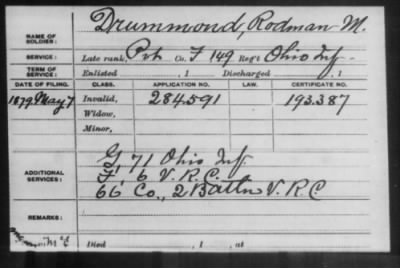 Drummond, Rodman M.
NAME OF SOLDIER:
SERVICE: Late rank, Pvt Co. F 149 Reg't Ohio Inf
TERM OF SERVICE: Enlisted , 1 Discharged , 1
DATE OF FILING. CLASS. APPLICATION NO. LAW. CERTIFICATE NO.
1879 May 7 Invalid, 284.591 193.387
Widow,
Minor,
G, 71 Ohio Inf.
ADDITIONAL SERVICES: F, 6 V. R. C.
66 Co., 2 Battn V. R. C.
REMARKS:
Died , 1 , at